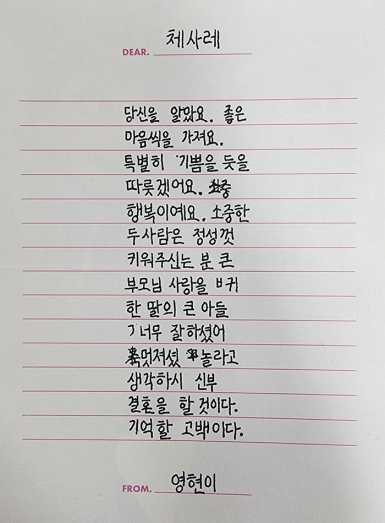 DEAR. 체사레
당신을 알았요. 좋은
마음씩을 가져요.
특별히 '기쁨을 듯을
따릇겠어요.
행복이예요. 소중한
두사람은 정성껏
키워주신는 분 큰
부모님 사랑을 ㅂ귀
한 딸의 큰 아들
ㄱ너무 잘하셨어
멋져셨 놀라고
생각하시 신부
결혼을 할 것이다.
기억할 고백이다.
FROM. 영현이